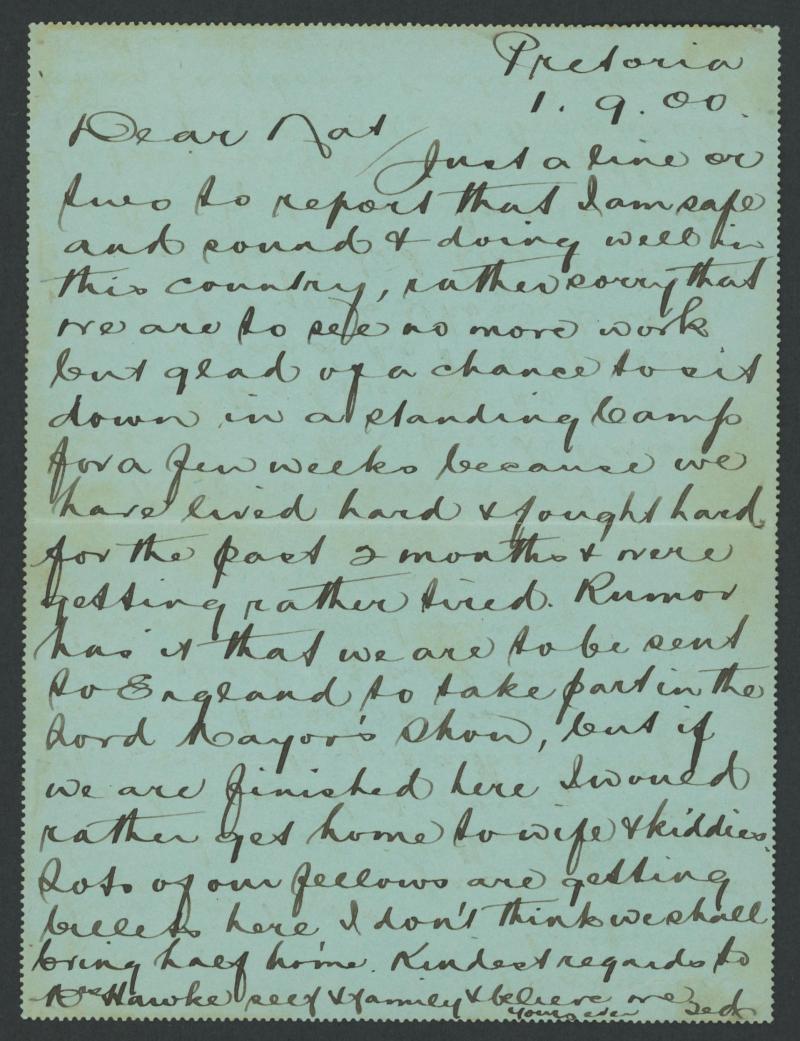 Pretoria
1. 9. 00.
Dear Nat
Just a line or
two to report that I am safe
and sound & doing well in
this country, rather sorry that
we are to see no more work
but glad of a chance to sit
down in a standing Camp
for a few weeks because we
have lived hard & fought hard
for the past 2 months & were
getting rather tired. Rumor
has it that we are to be sent
to England to take part in the
Lord Mayor's Show, but if
we are finished here I would
rather get home to wife & kiddies.
Lots of our fellows are getting
billets here I don't think we shall
bring half home. Kindest regards to
Mrs Hawke self & family & believe me
Yours ever Ted